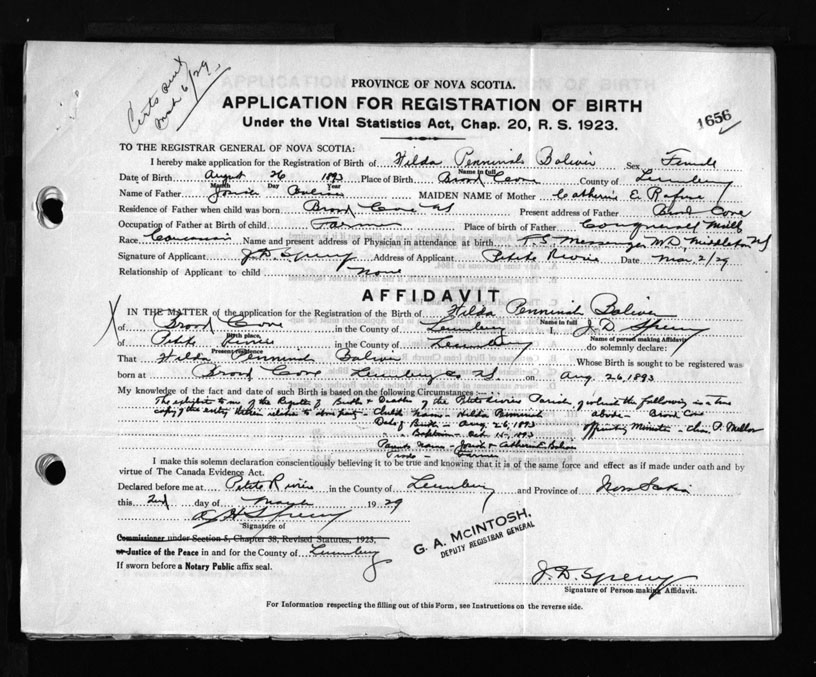 Certs sent
Mar 6/29
PROVINCE OF NOVA SCOTIA.
APPLICATION FOR REGISTRATION OF BIRTH
Under the Vital Statistics Act, Chap. 20, R. S. 1923.
1656
TO THE REGISTRAR GENERAL OF NOVA SCOTIA:
I hereby make application for the Registration of Birth of Hilda Penninah Boliver Sex Female
Name in full
Date of Birth August 26 1893 Place of Birth Broad Cove County of Lunenburg
Month Day Year
Name of Father Josiah Boliver MAIDEN NAME of Mother Catherine E. Rafuse
Residence of Father when child was born Broad Cove NS Present address of Father Broad Cove
Occupation of Father at Birth of child Farmer Place of birth of Father Conquerall Mills
Race Caucasian Name and present address of Physician in attendance at birth F. S. Messenger MD Middleton NS
Signature of Applicant J. D. Sperry Address of Applicant Petite Riviere Date Mar 2/29
Relationship of Applicant to child None
AFFIDAVIT
IN THE MATTER of the application for the Registration of the Birth of Hilda Penninah Boliver
Name in full
of Broad Cove in the County of Lunenburg I, J. D. Sperry
Birth place Name of person making Affidavit
of Petite Riviere in the County of Lunenburg do solemnly declare:
Present residence
That Hilda Penninah Boliver Whose Birth is sought to be registered was
born at Broad Cove Lunenburg Co. NS. on Aug. 26, 1893
My knowledge of the fact and date of such Birth is based on the following Circumstances :—
The exhibit to me of the Register of Births & Deaths of the Petite Riviere Parish, of which the following is a true
copy of the entry therein relative to Child's Name - Hilda Penninah above - Broad Cove
Date of Birth - Aug. 26, 1893 officiating Minister - Chas. P. Mellor
" " Baptism - Oct. 15, 1893
Parents Names - Josiah & Catherine E. Boliver
Trade - Farmer
I make this solemn declaration conscientiously believing it to be true and knowing that it is of the same force and effect as if made under oath and by
virtue of The Canada Evidence Act.
Declared before me at Petite Riviere in the County of Lunenburg and Province of Nova Scotia
this 2nd day of March 1929
Signature of
Commissioner under Section 5, Chapter 38, Revised Statutes, 1923,
or Justice of the Peace in and for the County of Lunenburg
If sworn before a Notary Public affix seal.
G. A. McINTOSH,
DEPUTY REGISTRAR GENERAL
J. D. Sperry
Signature of Person making Affidavit.
For Information respecting the filling out of this Form, see Instructions on the reverse side.